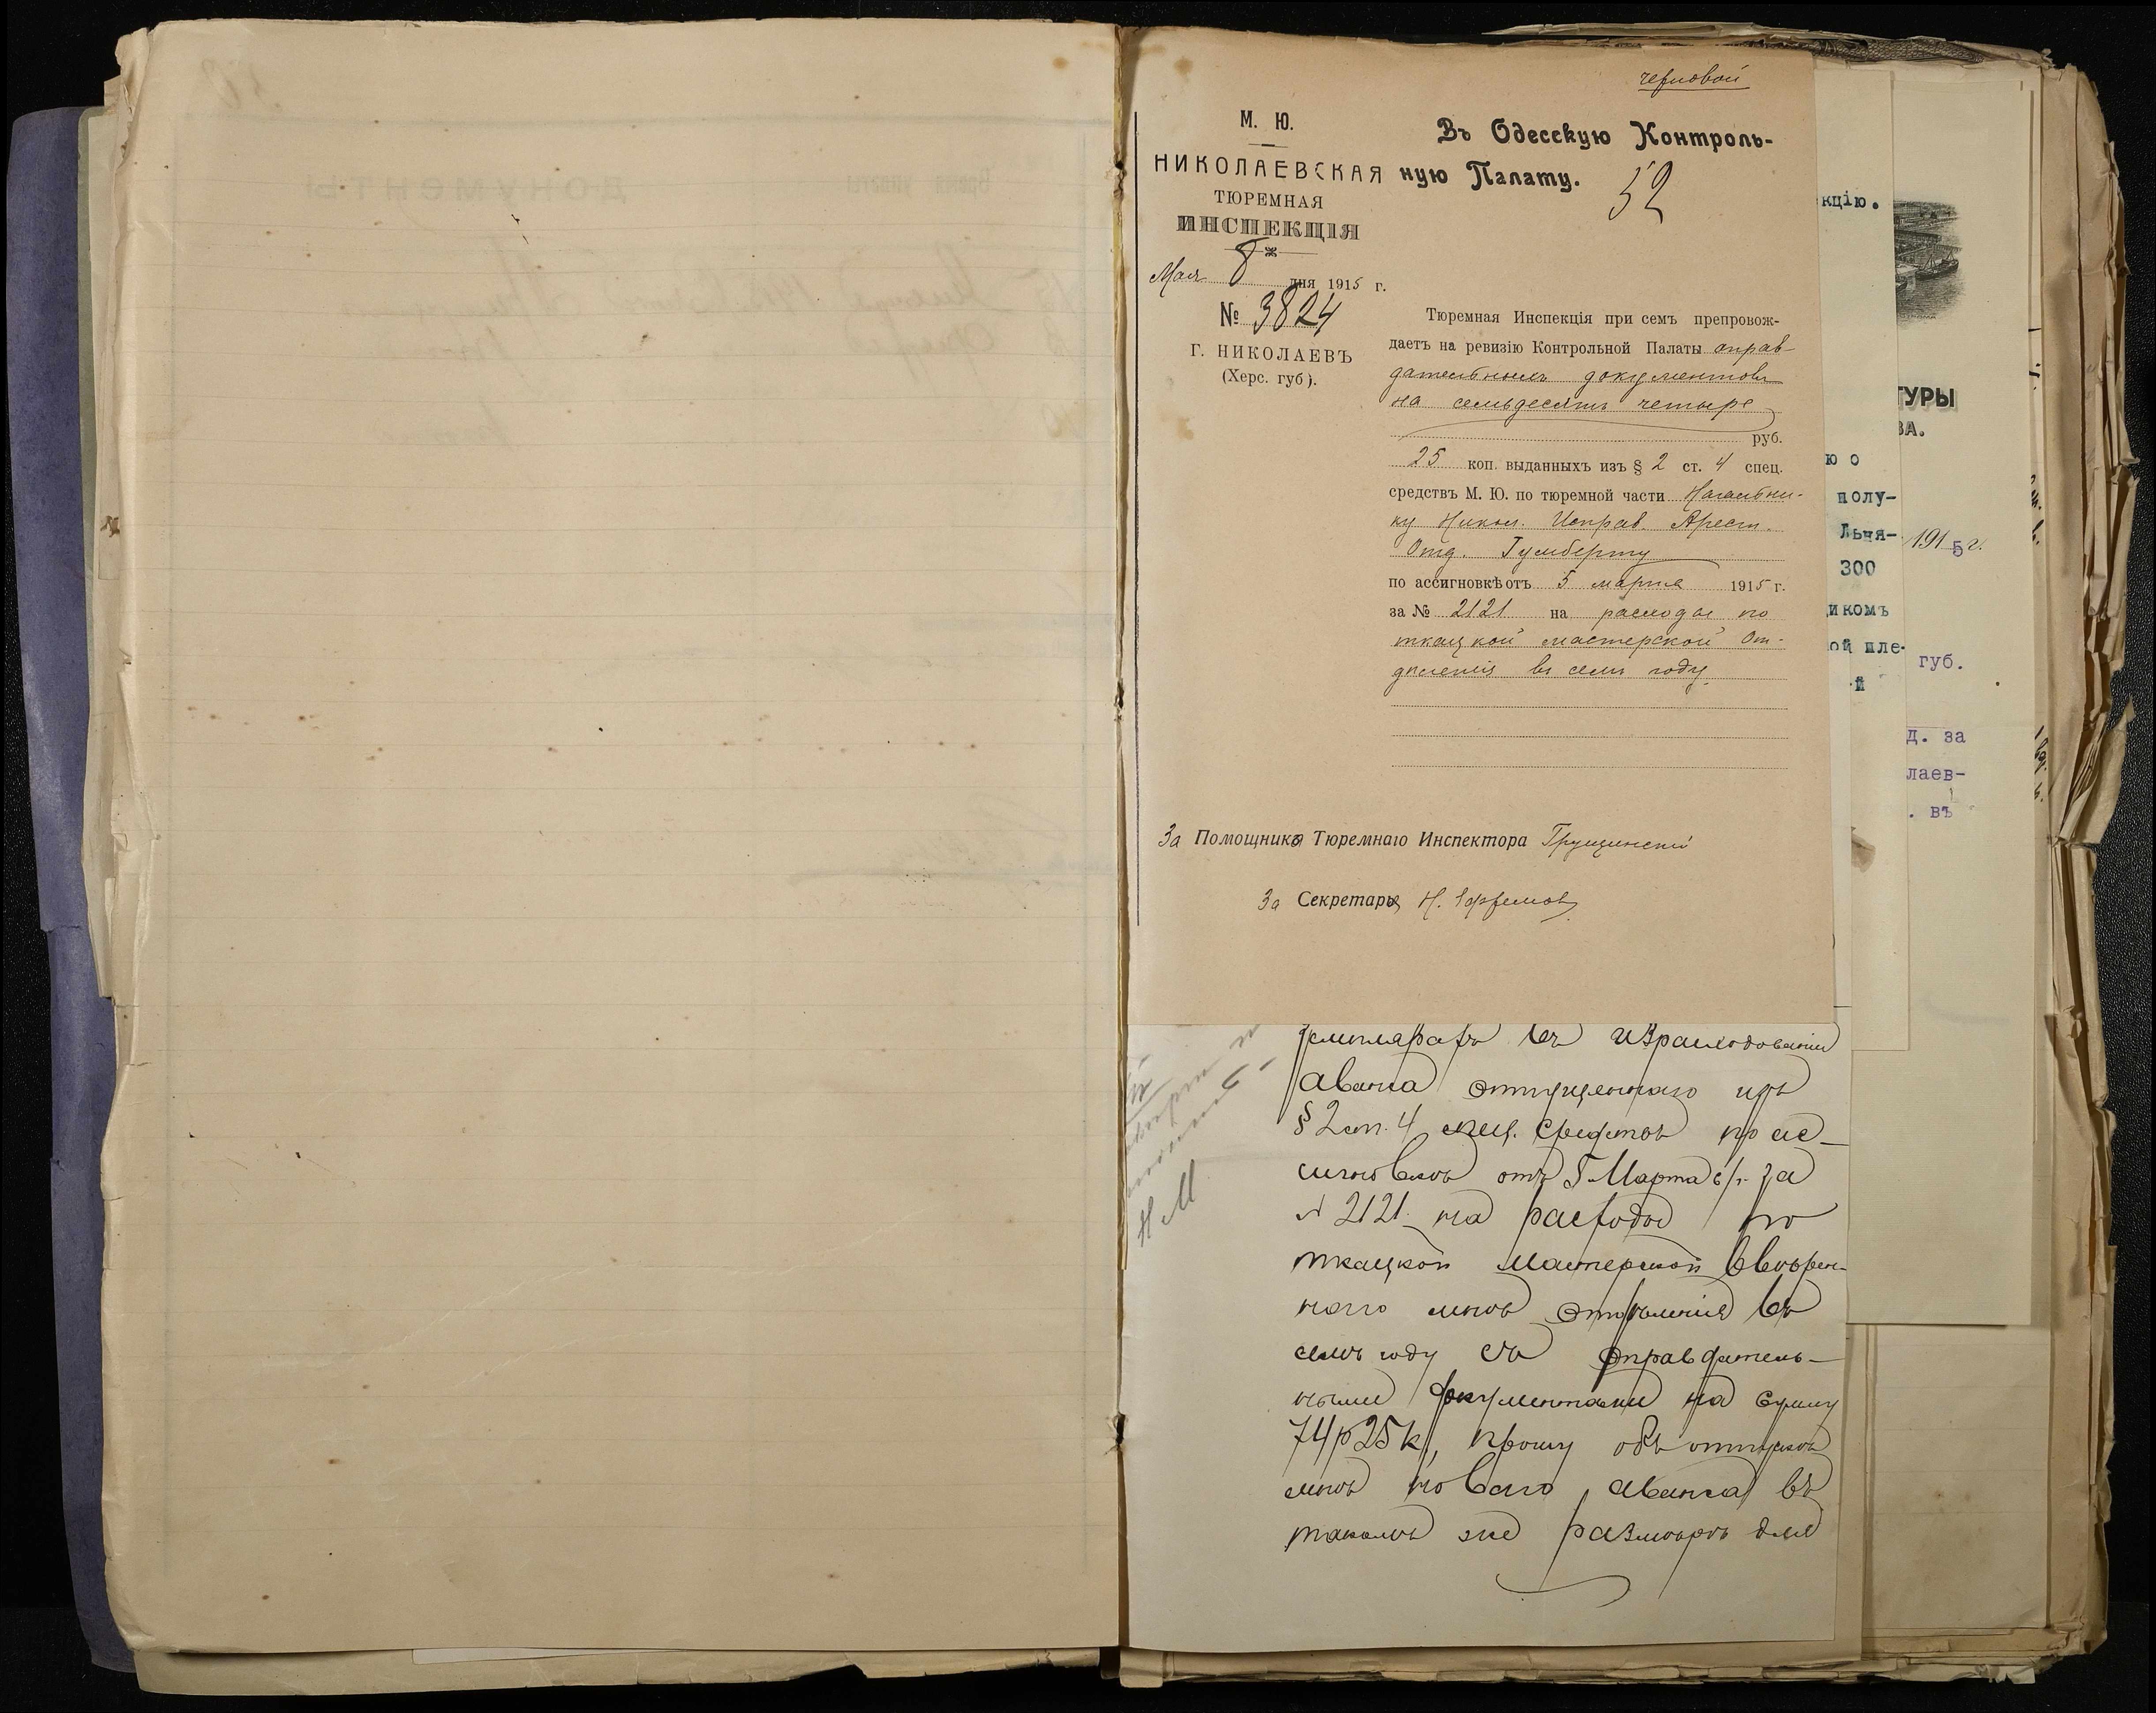 черновой
М. Ю.
НИКОЛАЕВСКАЯ
ТЮРЕМНАЯ
ИНСПЕКЦІЯ
Мая 8 дня 1915 г.
№ 3824
Г. НИКОЛАЕВЪ
(Херс. губ).
Въ Одесскую Контроль-
ную Палату.
52
Тюремная Инспекція при семъ препровож-
даетъ на ревизію Контрольной Палаты оправ-
дательныхъ документовъ
на семьдесятъ четыре
руб.
25 коп. выданныхъ изъ § 2 ст. 4 спец.
средствъ М. Ю. по тюремной части Начальни-
ку Никол. Исправ. Арест.
Отд. Гумберту
по ассигновкѣ отъ 5 марта 1915 г.
за № 2121 на расходы по
ткацкой мастерской От-
дѣленія въ семъ году.
За Помощника Тюремнаго Инспектора Грущинскій
За Секретаря Н. Ефремов
въ израсходованіи
аванса отпущеннаго изъ
§ 2 ст. 4 спец. средствъ по ас-
сигновкѣ отъ 5 Марта с/г. за
№ 2121 на расходы по
ткацкой мастерской ввѣрен-
наго мнѣ отдѣленія въ
семъ году съ оправдатель-
ными документами на сумму
74 р 25 к, прошу объ отпускѣ
мнѣ новаго аванса въ
такомъ же размѣрѣ для
кцію.
ю о
полу-
Льня-
300
икомъ
ой пле-
й
ТУРЫ
ВА.
1915 г.
губ.
д. за
лаев-
. въ